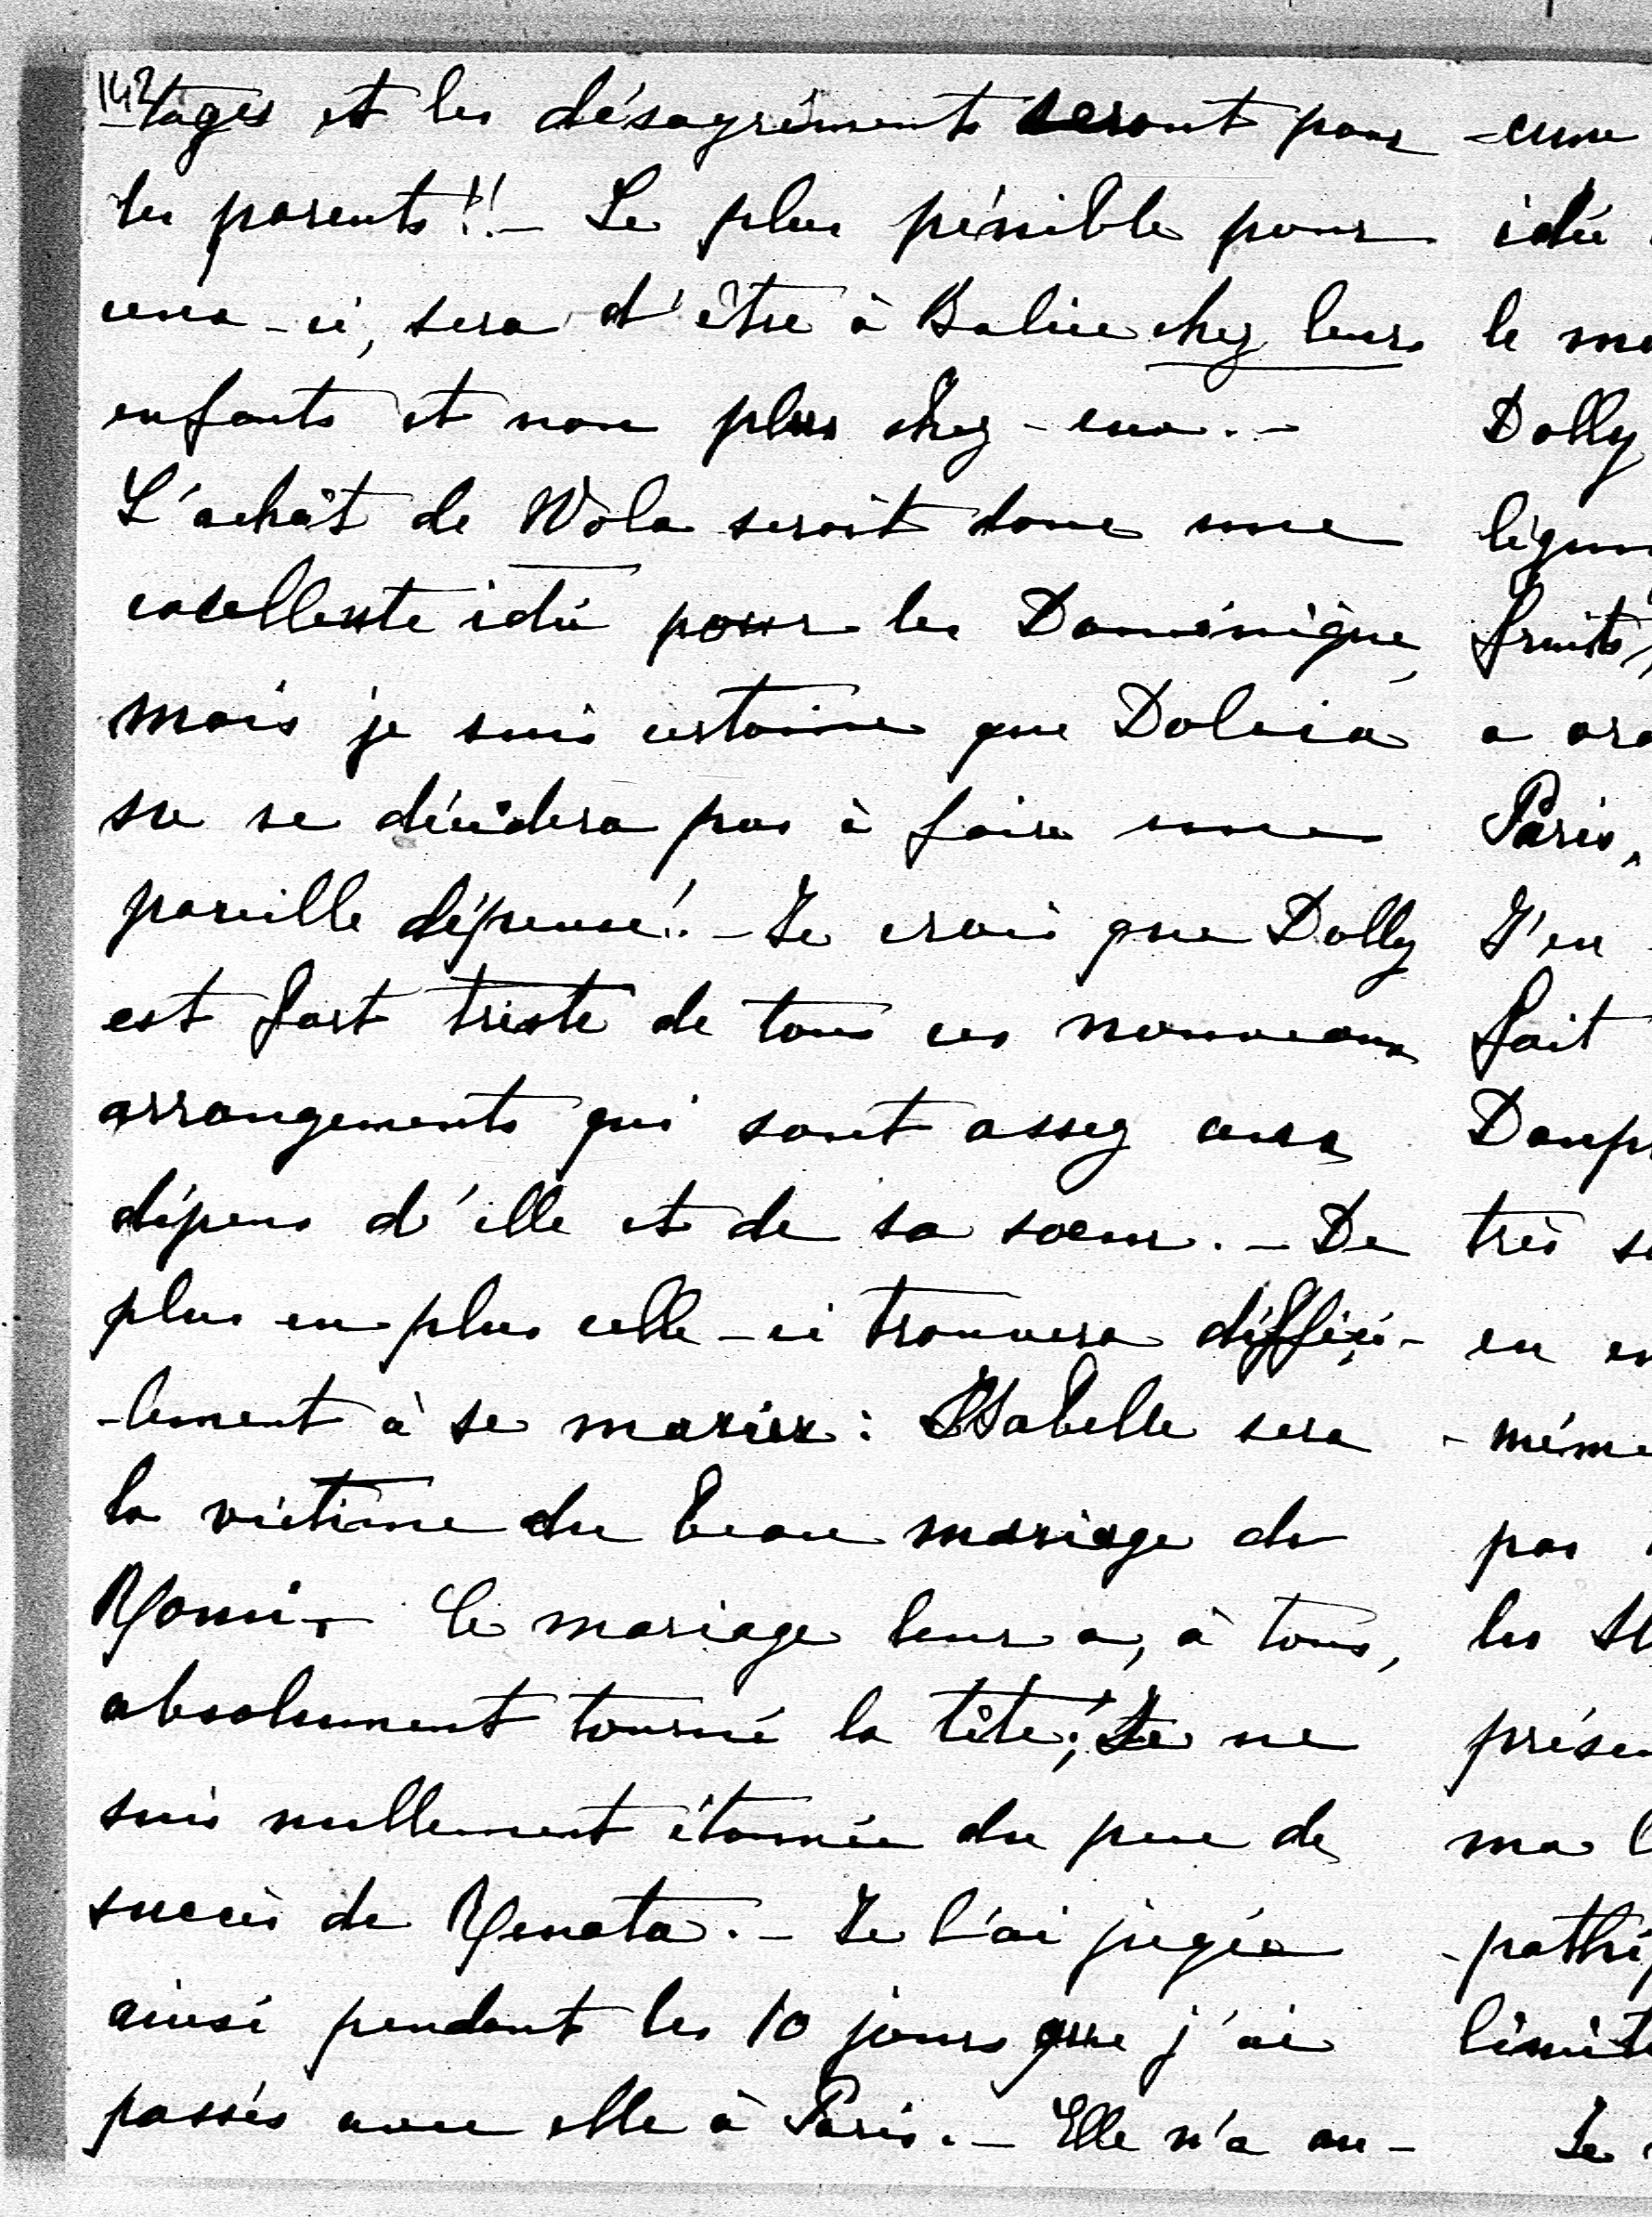 142
-tages et les désagréments seront pour
les parents!! - Le plus pénible pour
ceux-ci, sera d'être à Balice chez leurs
enfants et non plus chez-eux. -
L'achât de Wola serait donc une
excellente idée pour les Doménique,
mais je suis certaine que Dolcia
ne se décidera pas à faire une
pareille dépense! - Je crois que Dolly
est fort triste de tous ces nouveaux
arrangements qui sont assez aux
dépens d'elle et de sa soeur. - De
plus en plus celle-ci trouvera diffici-
-lement à se marier: Isabelle sera
la victime du beau mariage de
Ce mariage leur a, à tous,
absolument tourné la tête; Je ne
suis nullement étonnée du peu de
succès de Renata. - Je l'ai jugée
ainsi pendant les 10 jours que j'ai
passés avec elle à Paris. - Elle n'a au-
-cune
idée
le
Dolly
fruits,
a
Paris,
J'en
fait
très
en
-même
pas
les
ma
Je